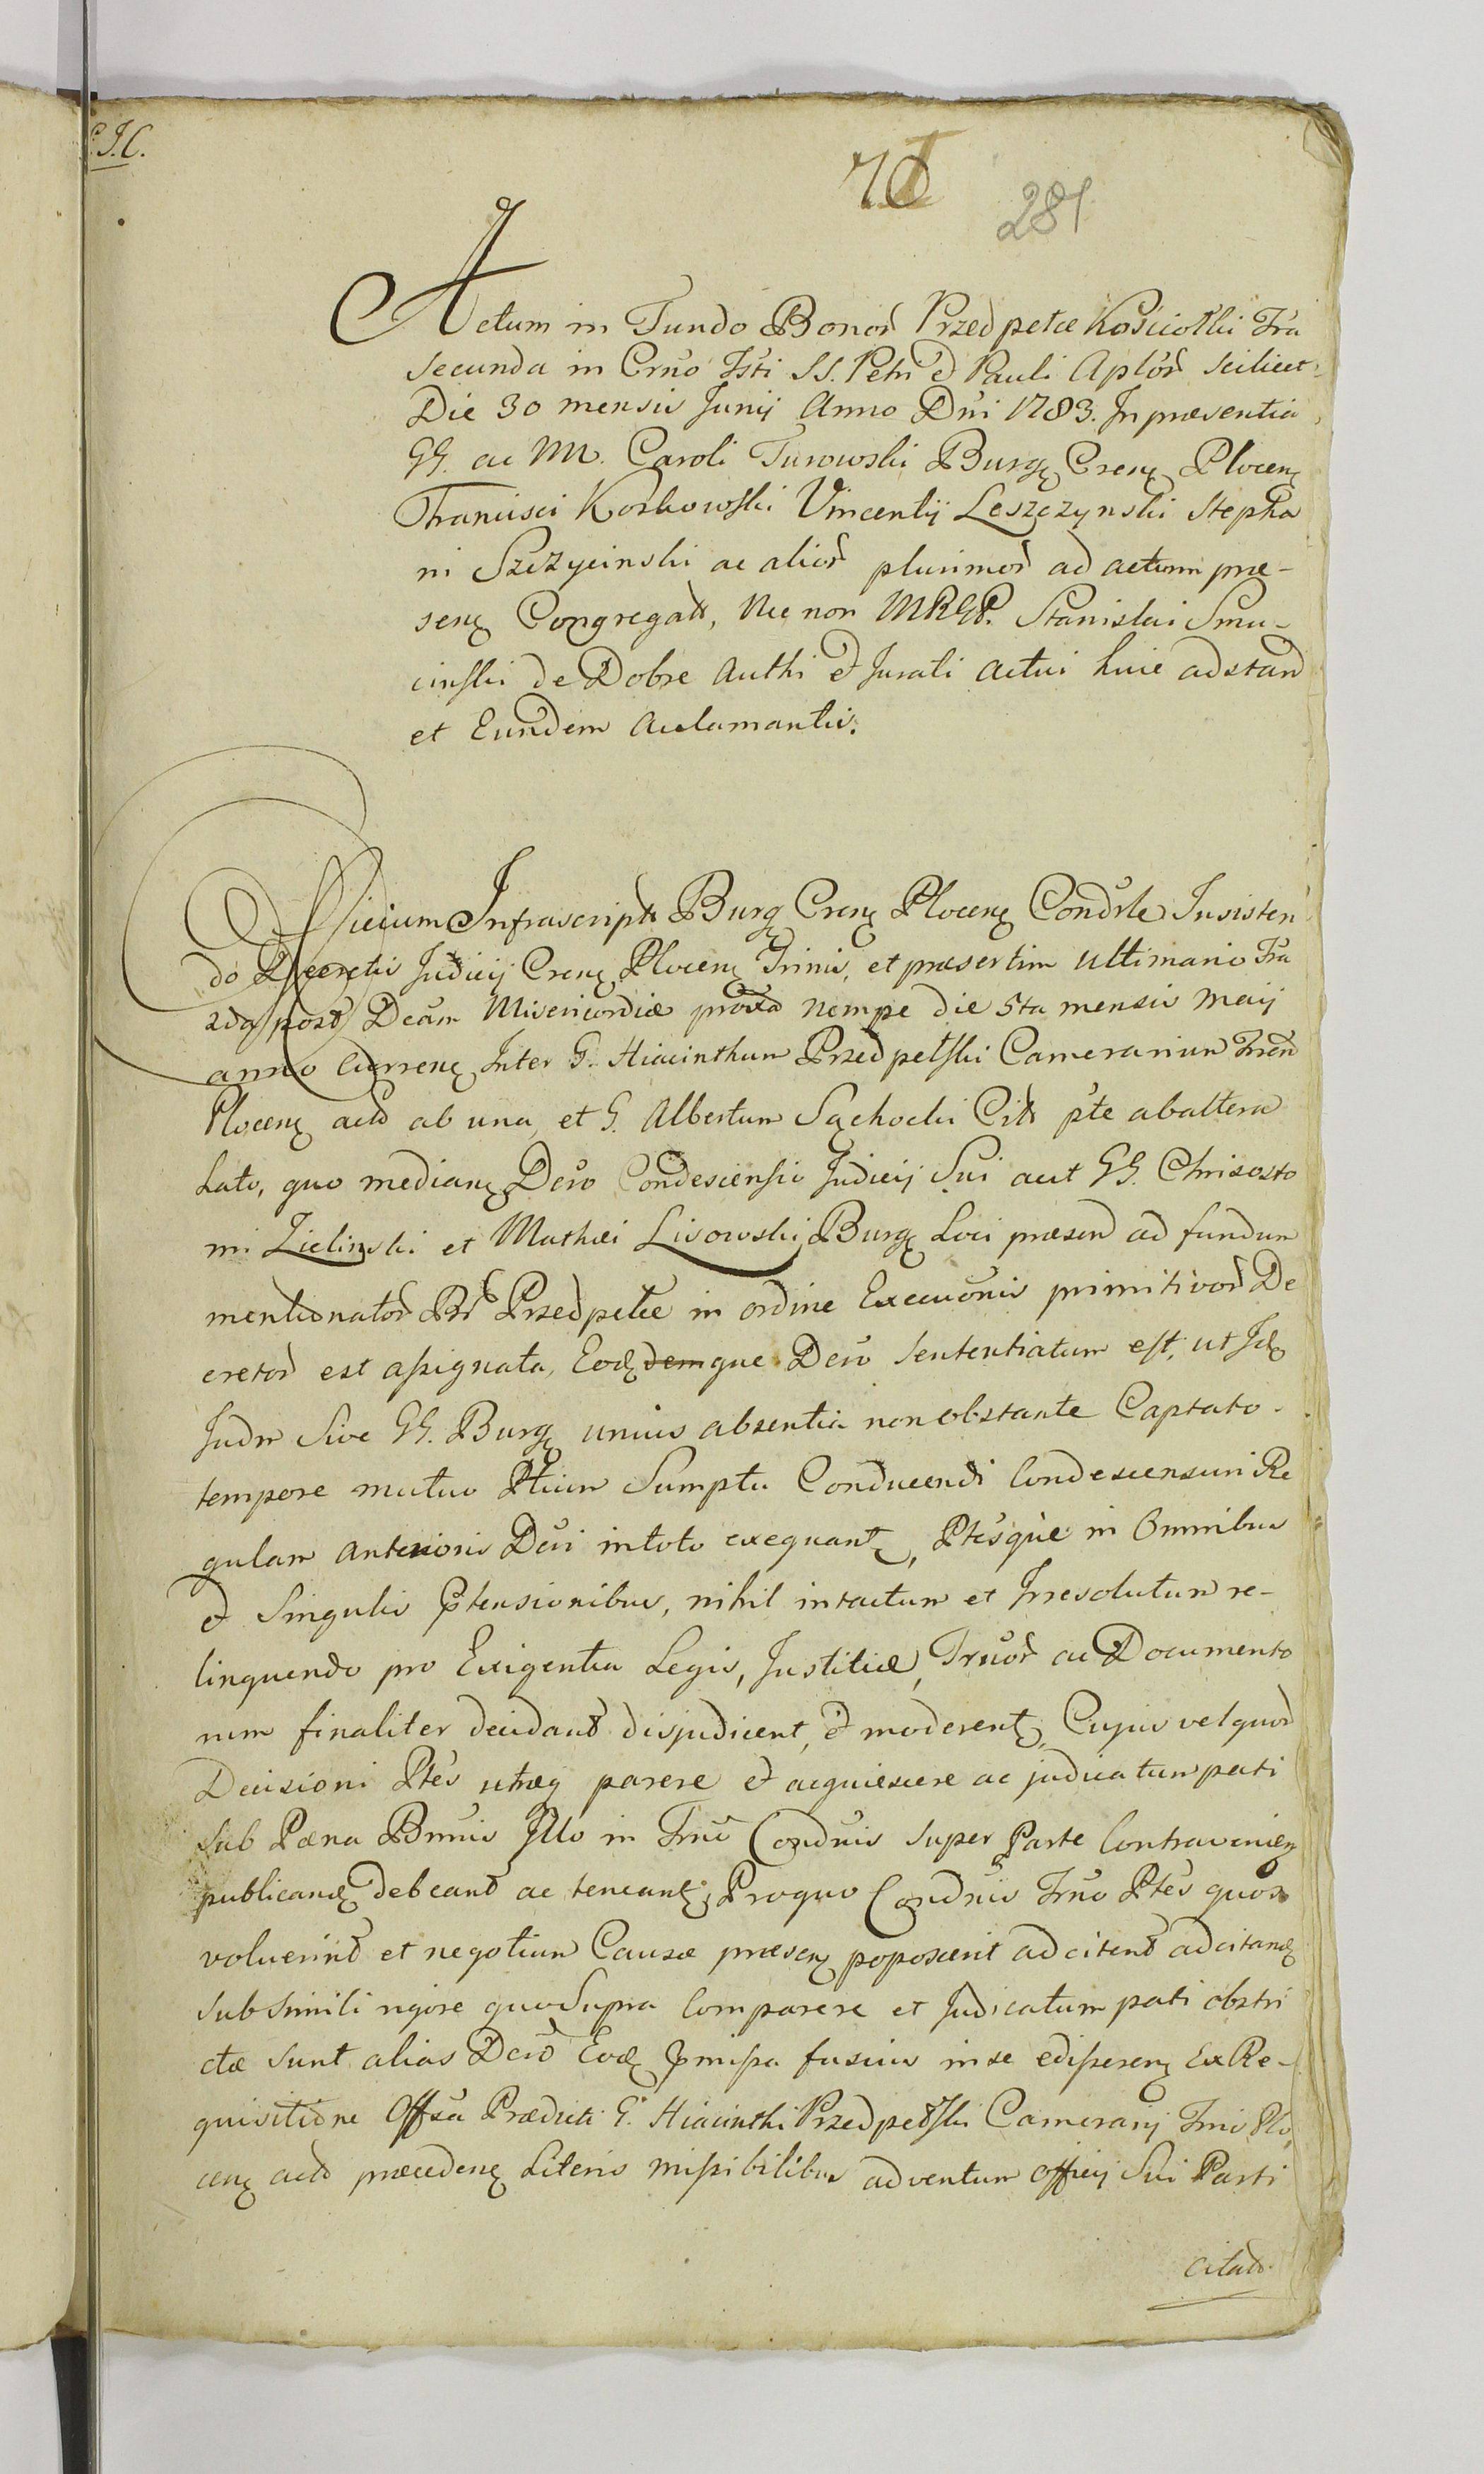 P.J.C.
70
281
Actum in Fundo Bonoŕ Przedpełce Kościołki Fra
secunda in Crňo Fsti SS. Petri & Pauli Aplöŕ scilicet
Die 30 mensis Junij Anno Dni 1783. In præsentia
GG. ac M. Caroli Turowski Burgę Crenę Plocenę
Francisci Korkowski Vincentij Leszczynski Stepha
ni Szczycinski ac alioŕ plurimoŕ ad actum præ-
senę Congregatt, Nec non MRGP. Stanislai Smu-
cinski de Dobre Authi & Jurati actui huic adstand
et Eundem Aclamantis.
Officium Infrascript Burgę Crenę Plocenę Condsle Insisten
do Decretis Judicij Crenę Plocenę Trinis, et præsertim ultimario Fra
2da post Dcam Misericordiæ proxa nempe die 5ta mensis Maij
anno Currenę Inter G. Hiacinthum Przedpełski Camerarium Fren
Plocenę actt ab una, et G. Albertum Sęchocki Citt pte ab altera
Lato, quo medianę Dcro Condescensio Judicij Sui aut GG. Chrisosto
mi Zielinski et Mathæi Lisowski Burgę Loci præsend ad fundum
mentionatoŕ Bŕ Przedpełce in ordine Execuönis primitivoŕ De
cretoŕ est assignata, Eodę demque Dcro sententiatum est, ut Jdę
Judm Sive GG. Burgę unius absentia non obstante Captato
tempore mutuo Ptium Sumptu Conducendi Condescensum Re
gulam anterioris Dcri in toto exequantę, Ptesque in Omnibus
& Singulis Ptensionibus, nihil intactum et Irresolutum re-
linquendo pro Exigentia Legis, Justitiæ, Jruoŕ ac Documento
rum finaliter decidant disjudicent, & moderentę, Cujus vel quoŕ
Decisioni Ptes utræq parere & acquiescere ac judicatum pati
sub Pæna Bnnis Jllo in Trno Condnis super Parte Contravenienę
publicandę debeant ac teneantę, Proquo Condnis Trno Ptes quos
voluerint et negotium Causæ præsenę poposcerit adcitent adcitandę
sub simili rigore quo supra Comparere et Judicatum pati obstri
ctæ sunt alias Dcro Eodę Pmissa fusius in se edisserenę Ex Re-
quisitione Offsa Prædicti G. Hiacinthi Przedpełski Camerarij Fris Plo
cenę actt præcedenę Literis missibilibus adventum officij Sui Parti
citatt.